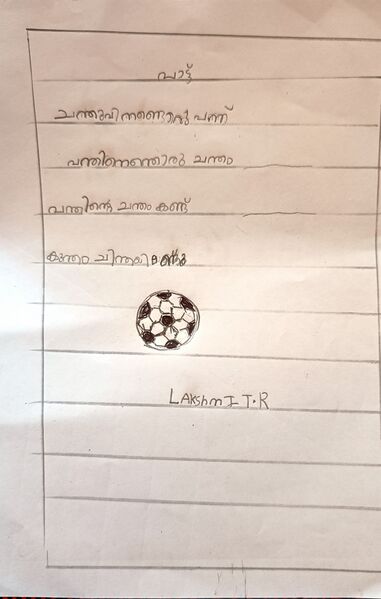 പാട്ട്
ചന്തുവിനണ്ടൊരു പന്ത്
പന്തിനെന്തൊരു ചന്തം
പന്തിന്റെ ചന്തം കണ്ട്
LAKshmI T.R